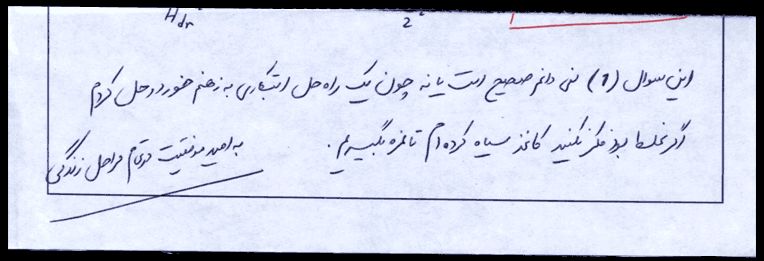 Hdr 2
این سوال (1) نمی دانم صحیح است یا نه چون یک راه حل ابتکاری به ذهنم خورد و حل کردم
اگر غلط بود فکر نکنید کاغذ سیاه کرده ام تا نمره بگیرم.
به امید موفقیت در تمام مراحل زندگی